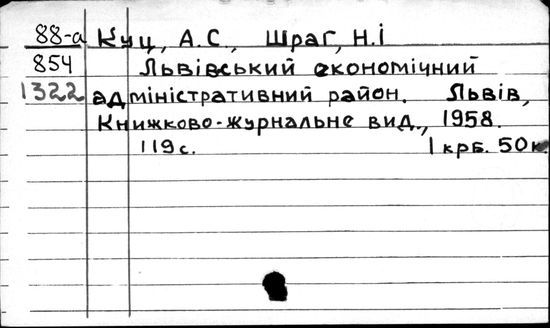 88-а Куц, А.С., Шраг, Н.І
854 Львівський економічний
1322 адміністративний район. Львів,
Книжково-журнальне вид., 1958.
119с. 1 крб. 50к.